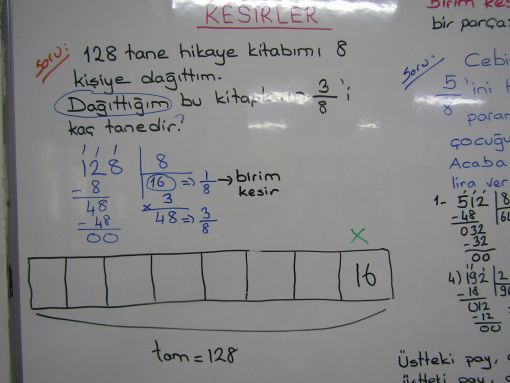 KESİRLER
Soru: 128 tane hikaye kitabımı 8
kişiye dağıttım.
Dağıttığım bu 3/8 'i
kaç tanedir?
128 | 8
- 8 | 16 => 1/8 → birim kesir
48 x 3
- 48 48 => 3/8
00
x
16
tam = 128
birim kes
bir parça
Soru: Cebi
5/8 'ini
param
çocuğu
Acaba
lira ver
1- 512 | 8
- 48
032
- 32
00
4) 192 | 2
- 18
012
- 12
00
Üstteki pay,